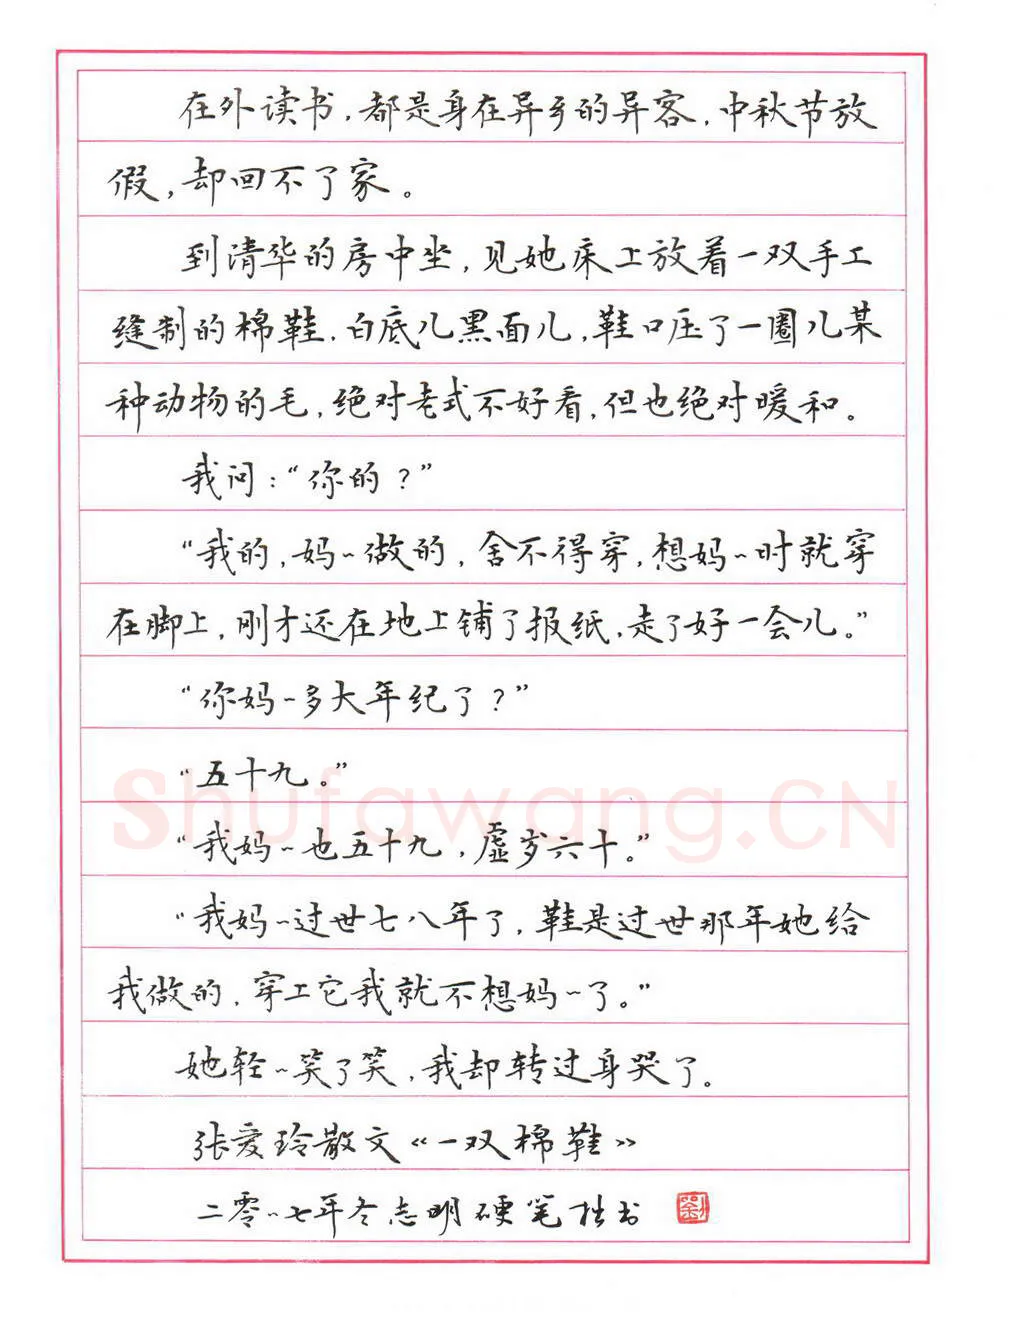 在外读书，都是身在异乡的异客，中秋节放
假，却回不了家。
到清华的房中坐，见她床上放着一双手工
缝制的棉鞋，白底儿黑面儿，鞋口压了一圈儿某
种动物的毛，绝对老式不好看，但也绝对暖和。
我问：“你的？”
“我的，妈~做的，舍不得穿，想妈~时就穿
在脚上，刚才还在地上铺了报纸，走了好一会儿。”
“你妈~多大年纪了？”
“五十九。”
shufawang.CN
“我妈~也五十九，虚岁六十。”
“我妈~过世七八年了，鞋是过世那年她给
我做的，穿上它我就不想妈~了。”
她轻~笑了笑，我却转过身哭了。
张爱玲散文《一双棉鞋》
二零一七年冬志明硬笔拙书 劉